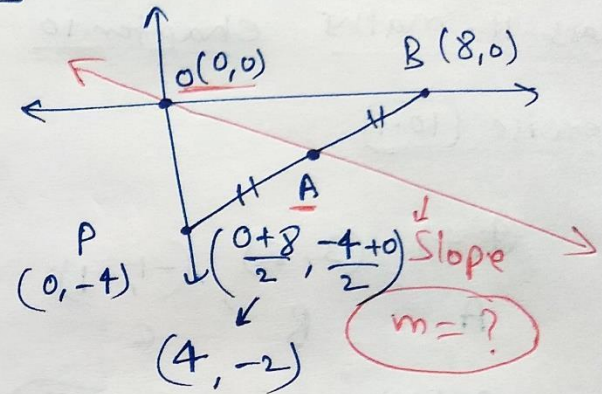 O(0,0)
B (8,0)
A
P
(0,-4)
(0+8/2, -4+0/2)
Slope
m = ?
(4, -2)